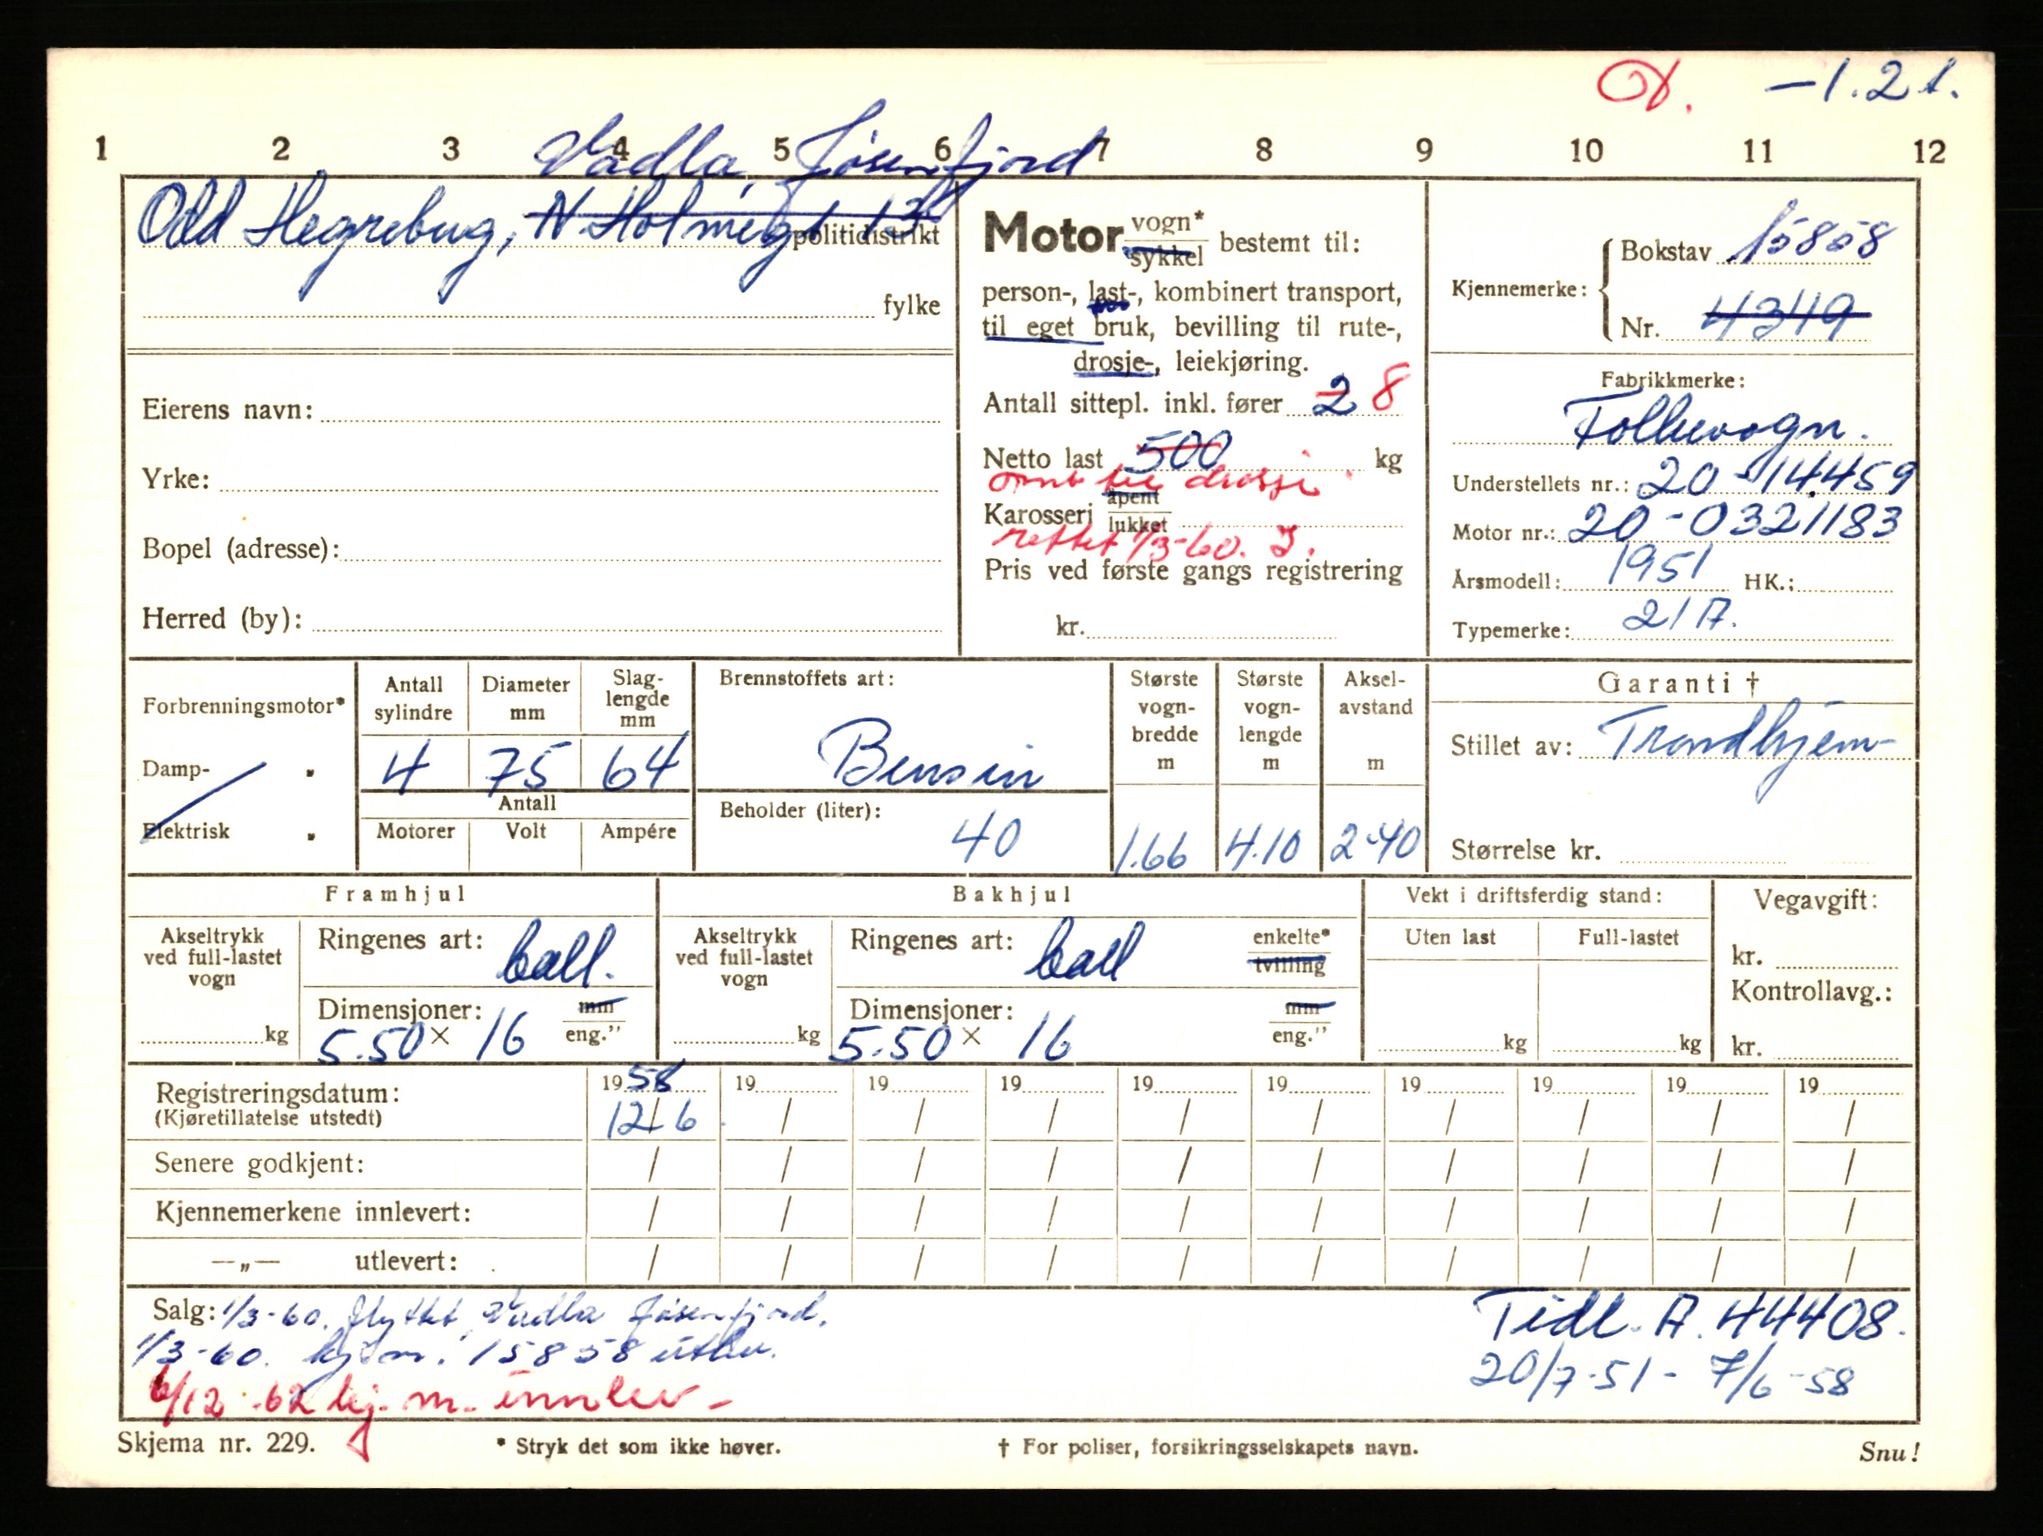 D. -1.21.
1 2 3 4 5 6 7 8 9 10 11 12
Vadla, Jøsenfjord
Odd Hegrebug, N. Holmegt 13
politidistrikt
fylke
Eierens navn:
Yrke:
Bopel (adresse):
Herred (by):
Motor vogn* sykkel bestemt til:
person-, last-, kombinert transport,
til eget bruk, bevilling til rute-,
drosje-, leiekjøring.
Antall sittepl. inkl. fører 2 8
Netto last 500 kg
omb til drosje
Karosseri åpent lukket
rettet 1/3-60.
Pris ved første gangs registrering
kr.
Kjennemerke: Bokstav 15858
Nr. 4349
Fabrikkmerke:
Folkevogn.
Understellets nr.: 20-14459
Motor nr.: 20-0321183
Årsmodell: 1951 HK.:
Typemerke: 21A.
Forbrenningsmotor*
Damp- "
Elektrisk "
Antall sylindre Diameter mm Slag-lengde mm
4 75 64
Antall
Motorer Volt Ampére
Brennstoffets art:
Bensin
Beholder (liter):
40
Største vogn-bredde m
1.66
Største vogn-lengde m
4.10
Aksel-avstand m
2.40
Garanti †
Stillet av: Trondhjem-
Størrelse kr.
Framhjul
Akseltrykk ved full-lastet vogn
kg
Ringenes art: ball.
Dimensjoner: mm
5.50 × 16 eng."
Bakhjul
Akseltrykk ved full-lastet vogn
kg
Ringenes art: ball enkelte* tvilling
Dimensjoner: mm
5.50 × 16 eng."
Vekt i driftsferdig stand:
Uten last Full-lastet
kg kg
Vegavgift:
kr.
Kontrollavg.:
kr.
Registreringsdatum: 1958 19 19 19 19 19 19 19 19 19
(Kjøretillatelse utstedt) 12/6 / / / / / / / / /
Senere godkjent: / / / / / / / / / /
Kjennemerkene innlevert: / / / / / / / / / /
—„— utlevert: / / / / / / / / / /
Salg: 1/3-60. flyttet Vadla Jøsenfjord.
1/3-60. kj.m. 15858 utlev.
6/12-62 kj. m. innlev-
Tidl. A. 44408.
20/7-51 - 7/6-58
Skjema nr. 229.
* Stryk det som ikke høver.
† For poliser, forsikringsselskapets navn.
Snu!